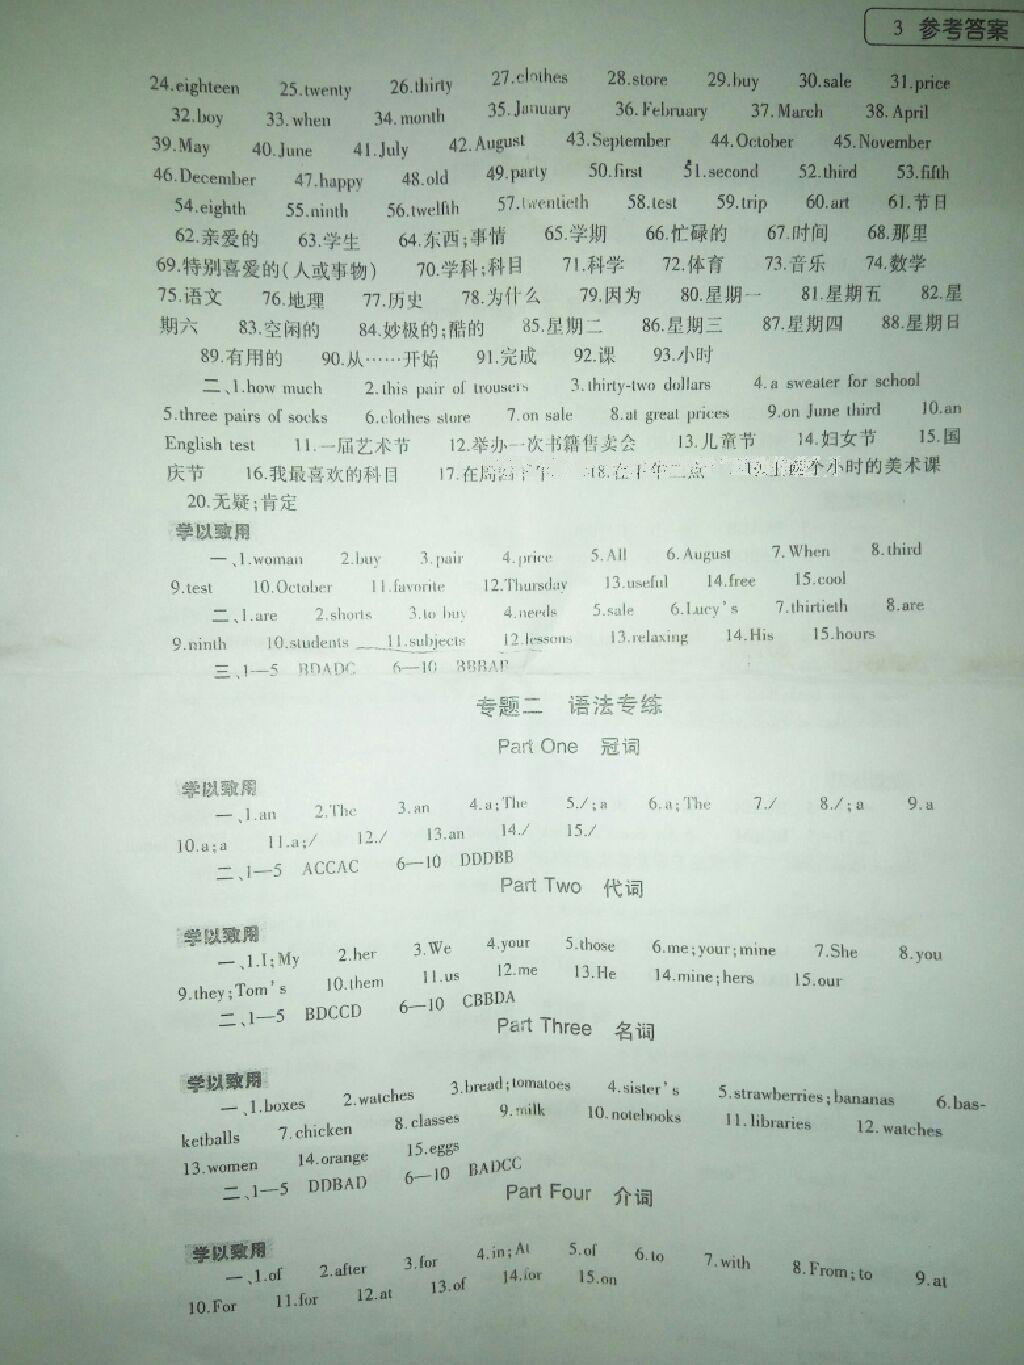 3 参考答案
24.eighteen 25.twenty 26.thirty 27.clothes 28.store 29.buy 30.sale 31.price
32.boy 33.when 34.month 35.January 36.February 37.March 38.April
39.May 40.June 41.July 42.August 43.September 44.October 45.November
46.December 47.happy 48.old 49.party 50.first 51.second 52.third 53.fifth
54.eighth 55.ninth 56.twelfth 57.twentieth 58.test 59.trip 60.art 61.节日
62.亲爱的 63.学生 64.东西;事情 65.学期 66.忙碌的 67.时间 68.那里
69.特别喜爱的(人或事物) 70.学科;科目 71.科学 72.体育 73.音乐 74.数学
75.语文 76.地理 77.历史 78.为什么 79.因为 80.星期一 81.星期五 82.星
期六 83.空闲的 84.妙极的;酷的 85.星期二 86.星期三 87.星期四 88.星期日
89.有用的 90.从……开始 91.完成 92.课 93.小时
二、1.how much 2.this pair of trousers 3.thirty-two dollars 4.a sweater for school
5.three pairs of socks 6.clothes store 7.on sale 8.at great prices 9.on June third 10.an
English test 11.一届艺术节 12.举办一次书籍售卖会 13.儿童节 14.妇女节 15.国
庆节 16.我最喜欢的科目 17.在周四下午 18. 两个小时的美术课
20.无疑;肯定
学以致用
一、1.woman 2.buy 3.pair 4.price 5.All 6.August 7.When 8.third
9.test 10.October 11.favorite 12.Thursday 13.useful 14.free 15.cool
二、1.are 2.shorts 3.to buy 4.needs 5.sale 6.Lucy's 7.thirtieth 8.are
9.ninth 10.students 11.subjects 12.lessons 13.relaxing 14.His 15.hours
三、1—5 BDADC 6—10
专题二 语法专练
Part One 冠词
学以致用
一、1.an 2.The 3.an 4.a;The 5./;a 6.a;The 7./ 8./;a 9.a
10.a;a 11.a;/ 12./ 13.an 14./ 15./
二、1—5 ACCAC 6—10 DDDBB
Part Two 代词
学以致用
一、1.I;My 2.her 3.We 4.your 5.those 6.me;your;mine 7.She 8.you
9.they;Tom's 10.them 11.us 12.me 13.He 14.mine;hers 15.our
二、1—5 BDCCD 6—10 CBBDA
Part Three 名词
学以致用
一、1.boxes 2.watches 3.bread;tomatoes 4.sister's 5.strawberries;bananas 6.bas-
ketballs 7.chicken 8.classes 9.milk 10.notebooks 11.libraries 12.watches
13.women 14.orange 15.eggs
二、1—5 DDBAD 6—10 BADCC
Part Four 介词
学以致用
一、1.of 2.after 3.for 4.in;At 5.of 6.to 7.with 8.From;to 9.at
10.For 11.for 12.at 13.of 14.for 15.on